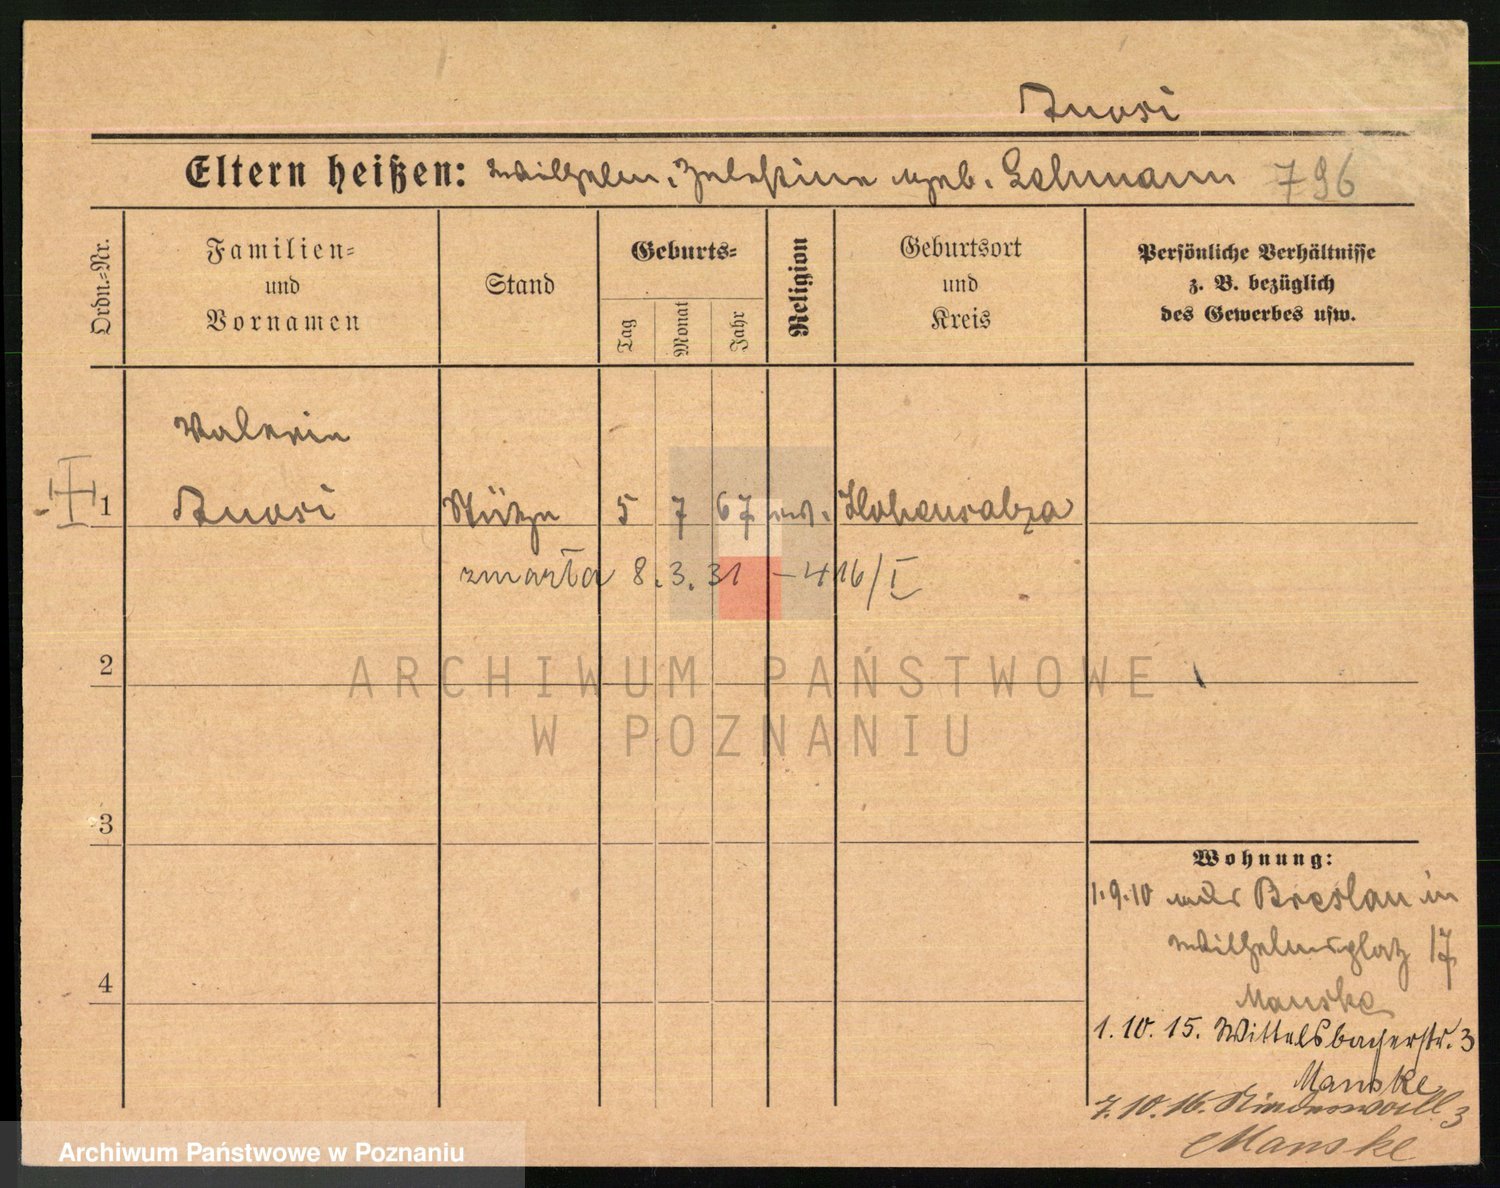 Knosi
Eltern heißen: Wilhelm, Zelestine geb. Lehmann 796
Ordn.-Nr.
Familien-
und
Vornamen
Stand
Geburts-
Tag
Monat
Jahr
Religion
Geburtsort
und
Kreis
Persönliche Verhältnisse
z. B. bezüglich
des Gewerbes usw.
Valeria
1 Knosi Stütze 5 7 67 ev. Hohensalza
zmarła 8.3.31 – 416/I
2
ARCHIWUM PAŃSTWOWE
W POZNANIU
3
4
Wohnung:
1.9.10 aus Breslau in
Wilhelmsplatz 17
Manske
1.10.15. Wittelsbacherstr. 3
Manske
7.10.16. 3
Manske
Archiwum Państwowe w Poznaniu